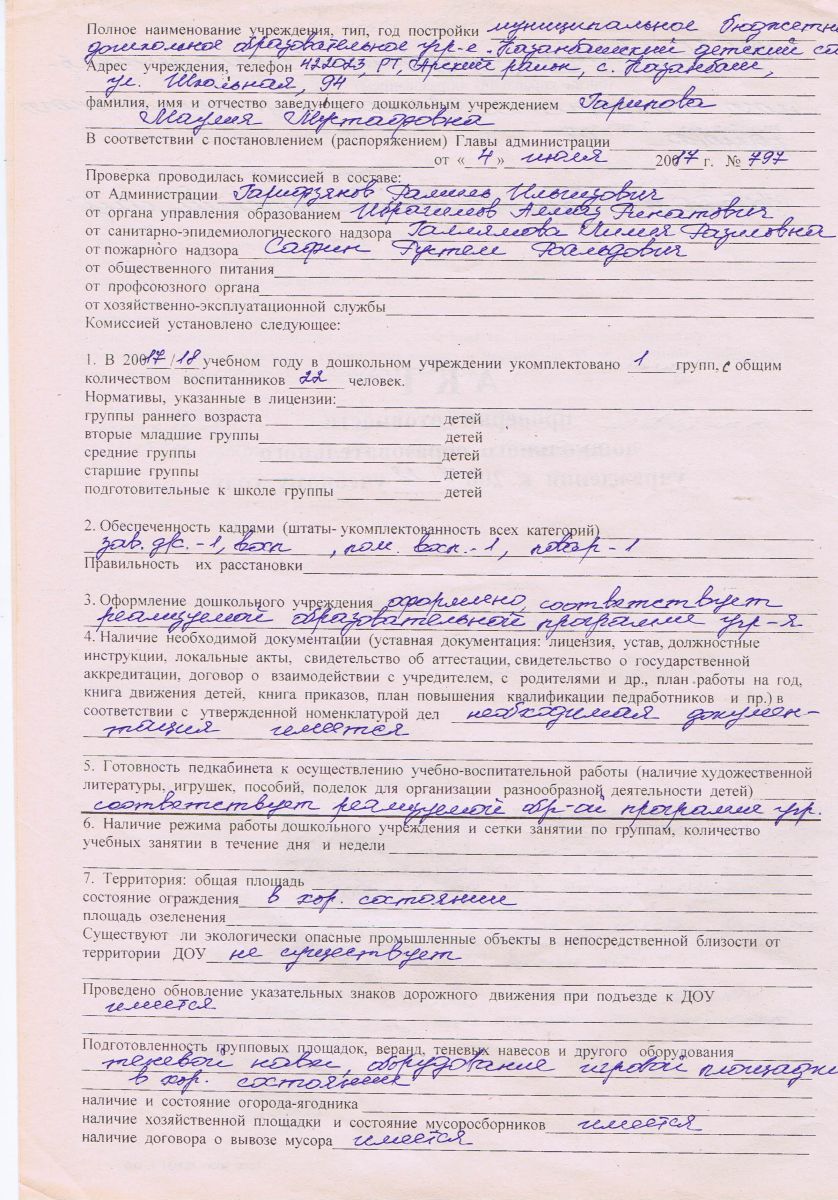 Полное наименование учреждения, тип, год постройки муниципальное бюджетн
дошкольное образовательное учр-е "Казанбашский детский са
Адрес учреждения, телефон 422023, РТ, Арский район, с. Казанбаш,
ул. Школьная, 94
фамилия, имя и отчество заведующего дошкольным учреждением Гарипова
Мустафовна
В соответствии с постановлением (распоряжением) Главы администрации
от « 4 » июля 20017 г. № 797
Проверка проводилась комиссией в составе:
от Администрации Гарифзянов Рамиль Ильгизович
от органа управления образованием Ибрагимов Алмаз Ринатович
от санитарно-эпидемиологического надзора Галлямова Разиловна
от пожарного надзора Сафин Рустем
от общественного питания
от профсоюзного органа
от хозяйственно-эксплуатационной службы
Комиссией установлено следующее:
1. В 20017/18 учебном году в дошкольном учреждении укомплектовано 1 групп, с общим
количеством воспитанников 22 человек.
Нормативы, указанные в лицензии:
группы раннего возраста детей
вторые младшие группы детей
средние группы детей
старшие группы детей
подготовительные к школе группы детей
2. Обеспеченность кадрами (штаты- укомплектованность всех категорий)
зав. д/с.-1, восп , пом. восп.-1, повар-1
Правильность их расстановки
3. Оформление дошкольного учреждения оформлено, соответствует
реализуемой образовательной программе учр-я
4. Наличие необходимой документации (уставная документация: лицензия, устав, должностные
инструкции, локальные акты, свидетельство об аттестации, свидетельство о государственной
аккредитации, договор о взаимодействии с учредителем, с родителями и др., план работы на год,
книга движения детей, книга приказов, план повышения квалификации педработников и пр.) в
соответствии с утвержденной номенклатурой дел необходимая докумен-
тация имеется
5. Готовность педкабинета к осуществлению учебно-воспитательной работы (наличие художественной
литературы, игрушек, пособий, поделок для организации разнообразной деятельности детей)
соответствует реализуемой обр-ой программе учр.
6. Наличие режима работы дошкольного учреждения и сетки занятии по группам, количество
учебных занятии в течение дня и недели
7. Территория: общая площадь
состояние ограждения в хор. состоянии
площадь озеленения
Существуют ли экологически опасные промышленные объекты в непосредственной близости от
территории ДОУ не существует
Проведено обновление указательных знаков дорожного движения при подъезде к ДОУ
имеется
Подготовленность групповых площадок, веранд, теневых навесов и другого оборудования
теневой навес, оборудование игровой площадки
в хор. состоянии
наличие и состояние огорода-ягодника
наличие хозяйственной площадки и состояние мусоросборников имеется
наличие договора о вывозе мусора имеется